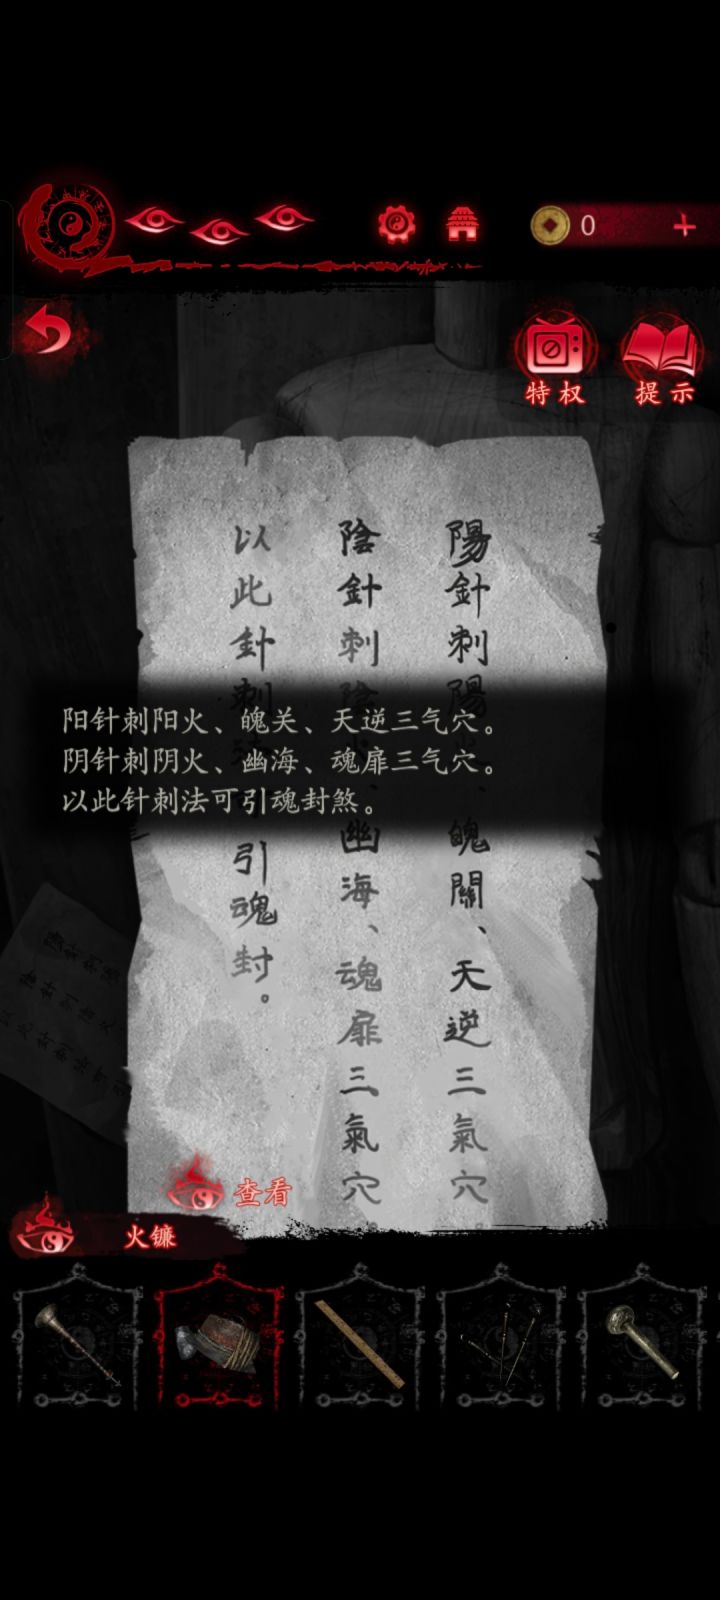 0
特权
提示
陽針刺陽
魄關、天逆三氣穴。
陰針刺陰
幽海、魂扉三氣穴。
以此針刺
引魂封。
阳针刺阳火、魄关、天逆三气穴。
阴针刺阴火、幽海、魂扉三气穴。
以此针刺法可引魂封煞。
查看
火镰